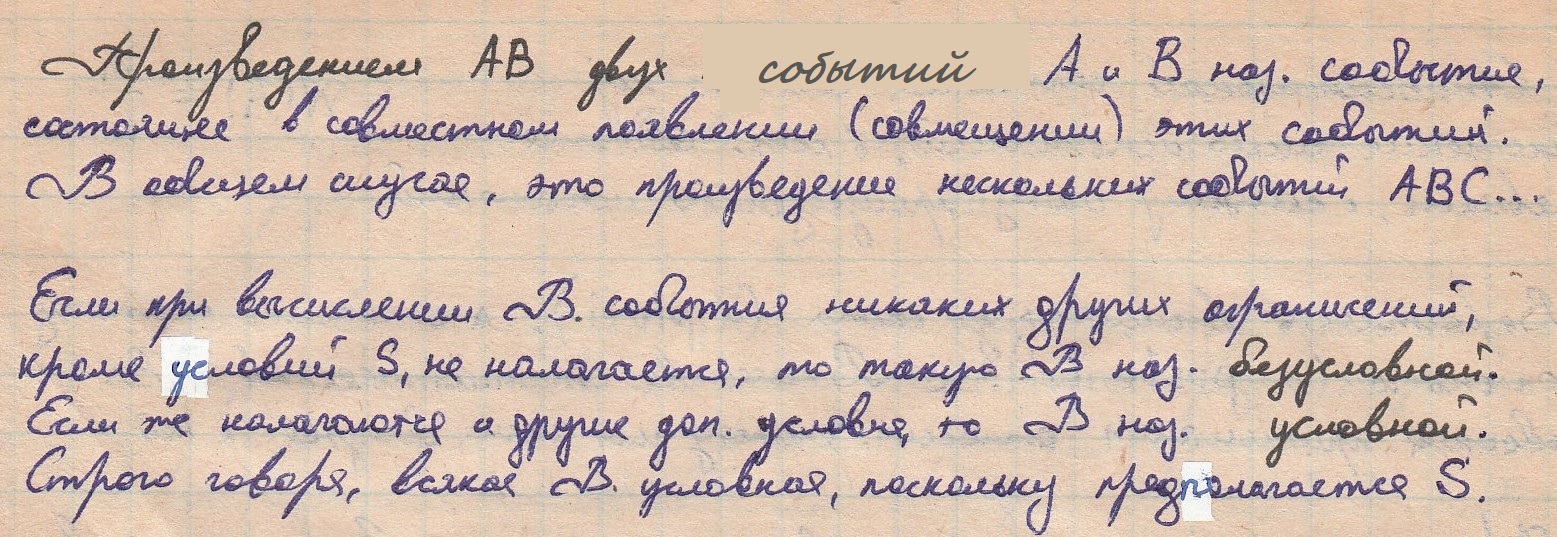 Произведением АВ двух событий А и В наз. событие,
состоящее в совместном появлении (совмещении) этих событий.
В общем случае, это произведение нескольких событий АВС...
Если при вычислении В. события никаких других ограничений,
кроме условий S, не налагается, то такую В наз. безусловной.
Если же налагаются и другие доп. условия, то В наз. условной.
Строго говоря, всякая В. условная, поскольку предполагается S.